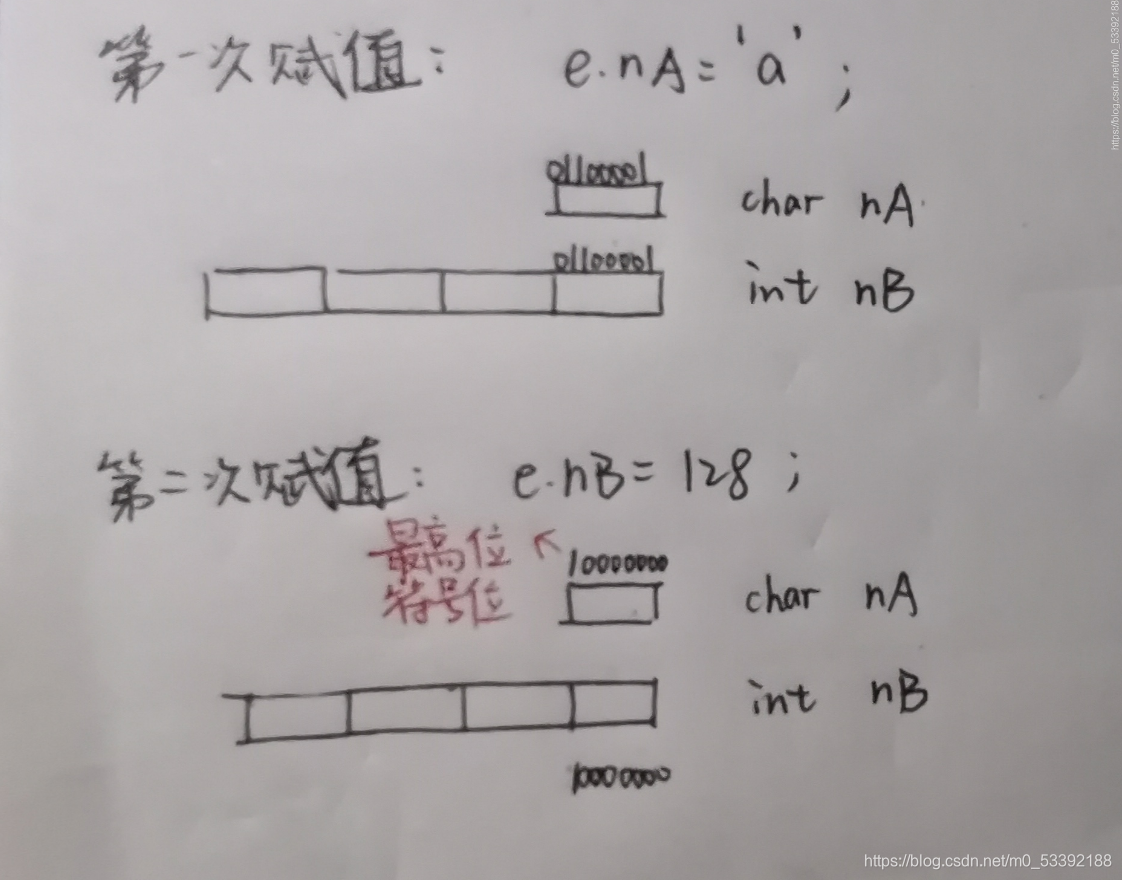 第一次赋值： e.nA = 'a' ;
01100001
char nA
01100001
int nB
第二次赋值： e.nB = 128 ;
最高位
符号位
10000000
char nA
int nB
10000000
https://blog.csdn.net/m0_53392188
https://blog.csdn.net/m0_53392188